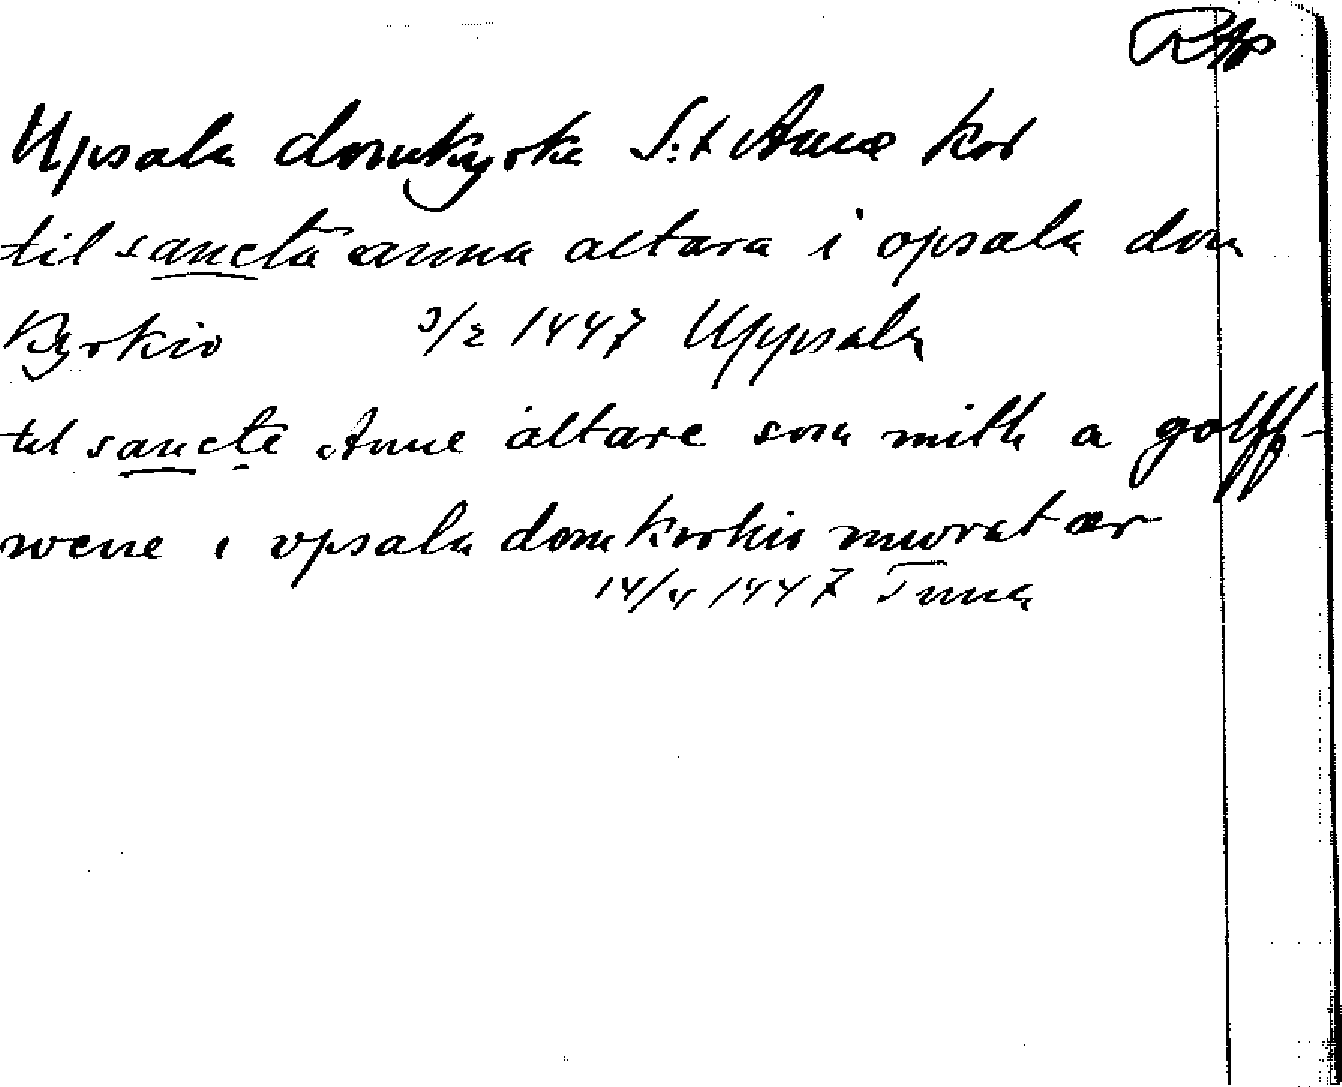 RAp
Upsala domkyrka S:t Annæ kor
til sancta anna altara i opsala dom
kyrkio 3/2 1447 Uppsala
til sancte Anne altare som mith a golff-
wene i vpsala domkirkio mwrat ær
14/4 1447 Tuna